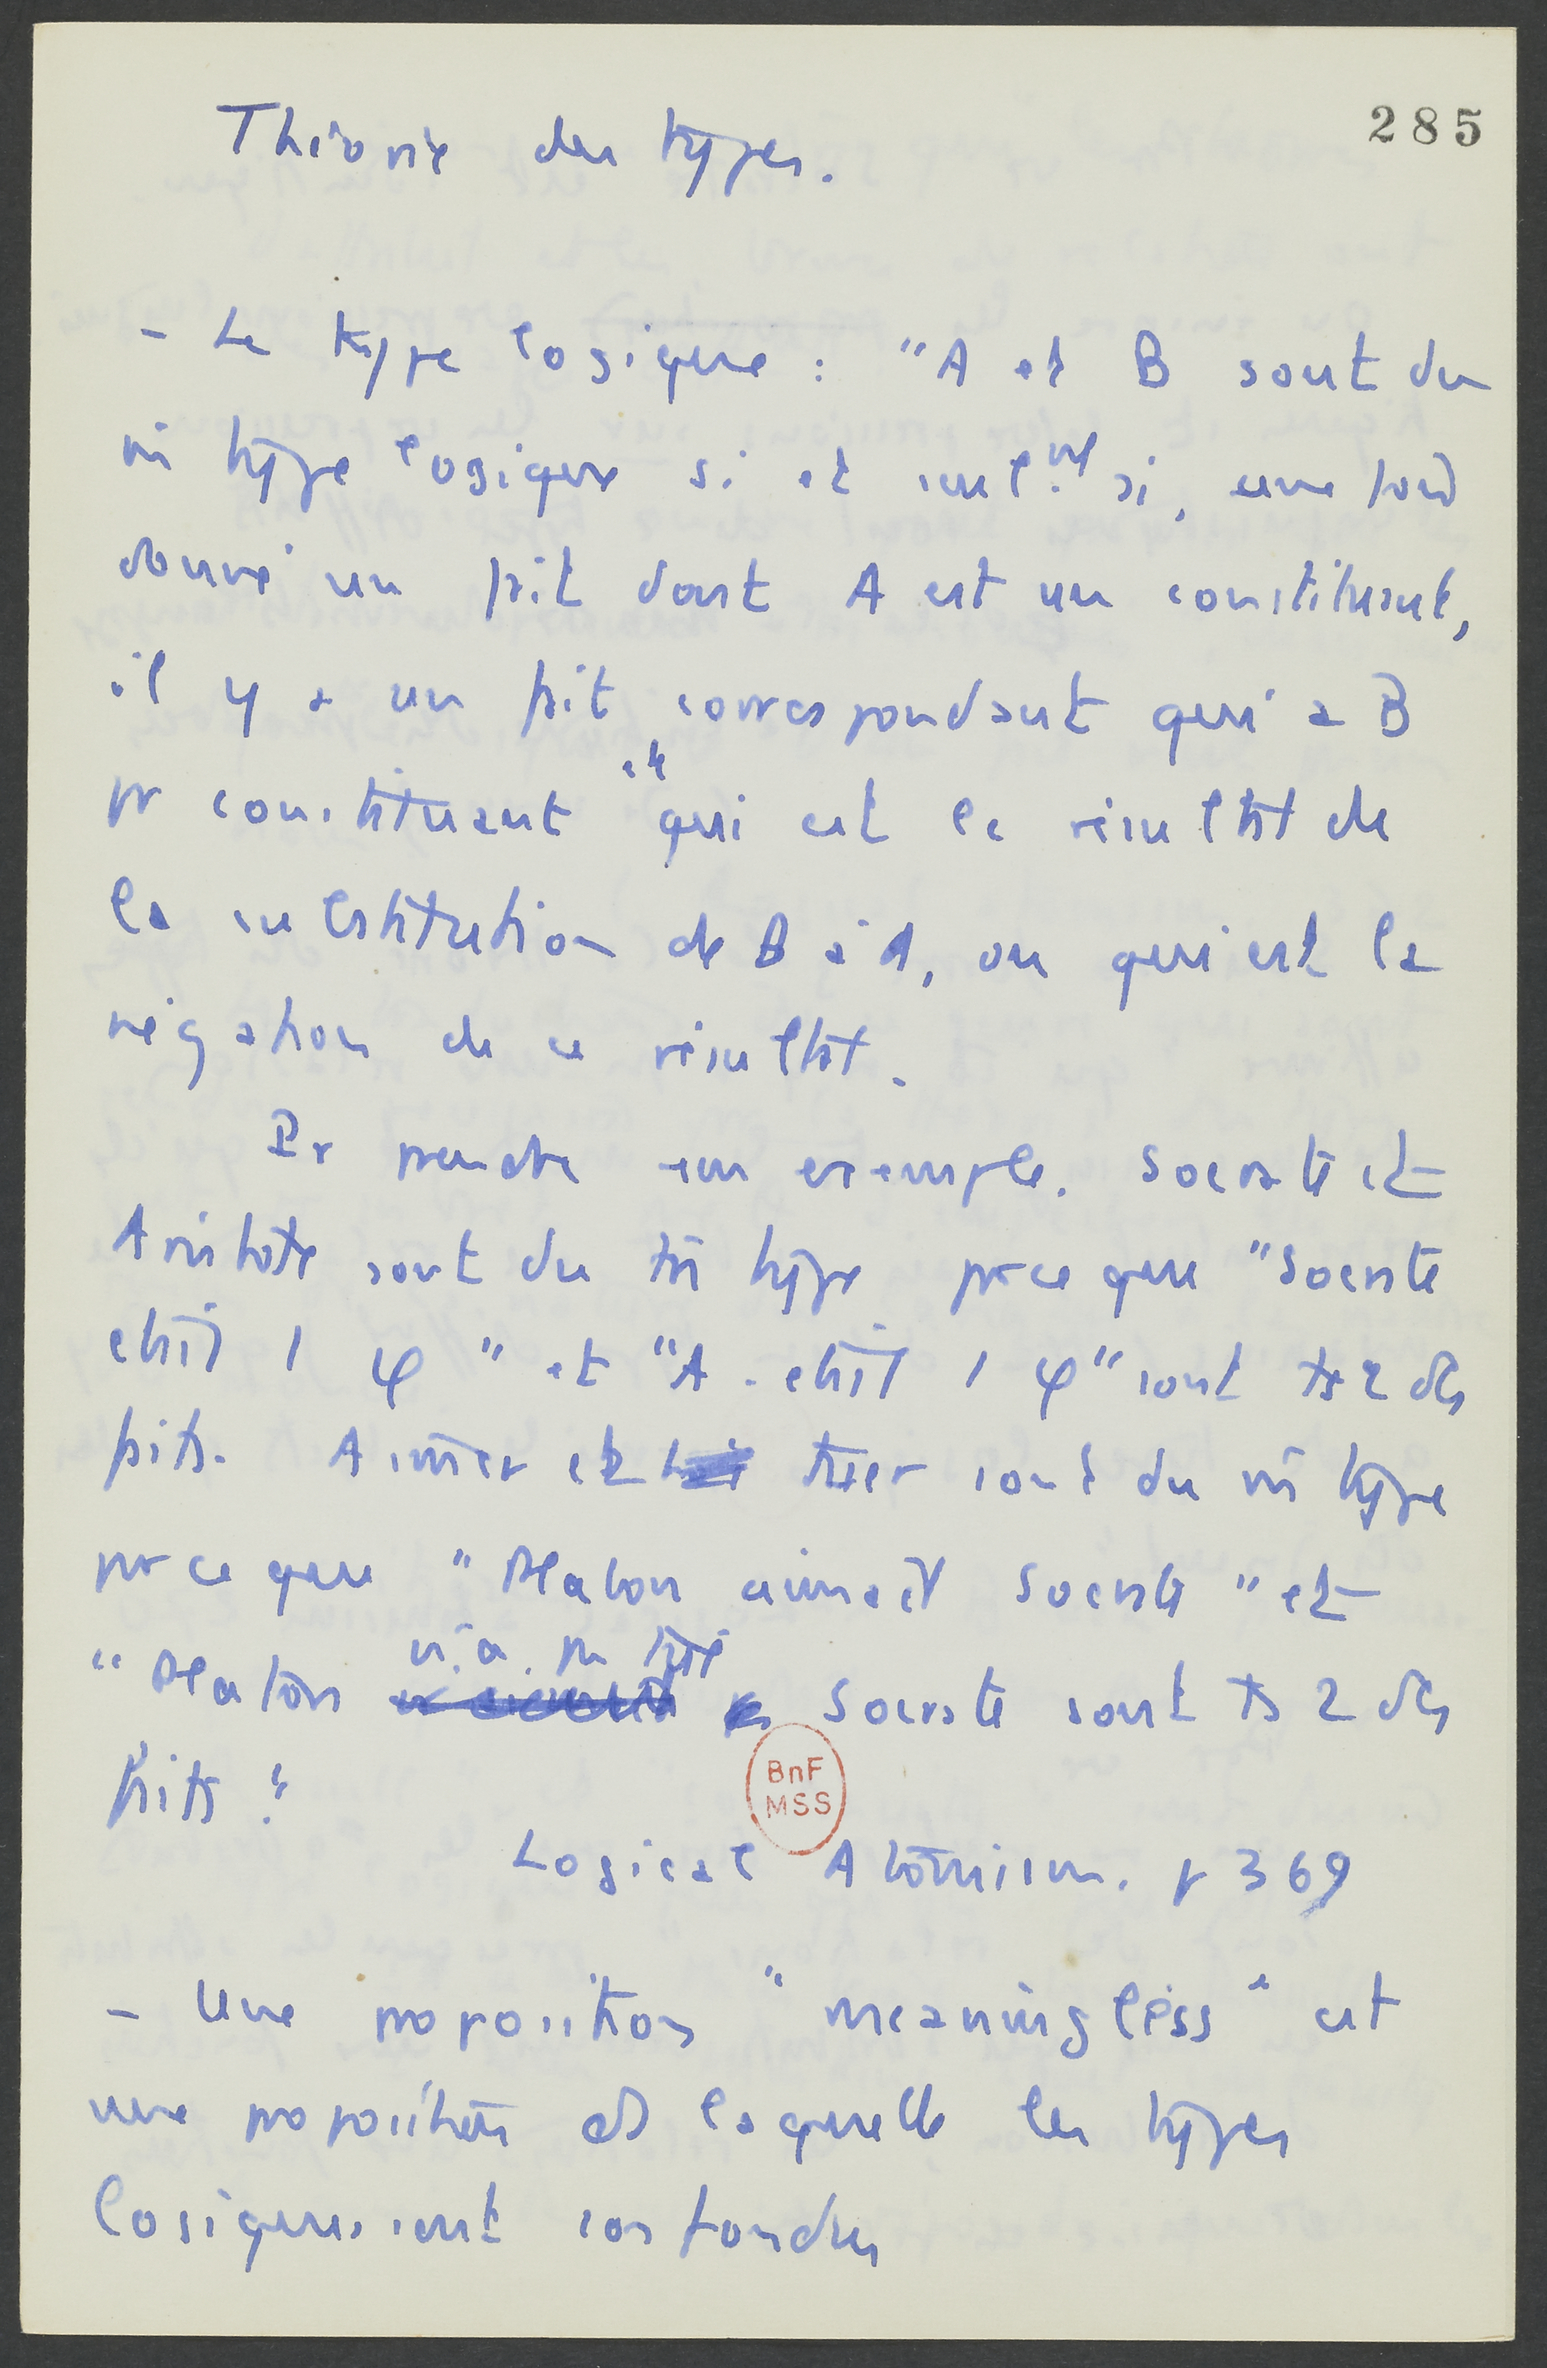 285
Théorie des types.
- Le type logique : "A et B sont du
m̂ type logique si et seul.nt si, une fois
donné un fait dont A est un constituant,
il y a un fait correspondant qui a B
pr constituant et qui est le résultat de
la substitution de B à A, ou qui est la
négation de ce résultat.
Pr prendre un exemple. Socrate et
Aristote sont du m̂ type parce que "Socrate
était 1 φ" et "A. était 1 φ" sont ts 2 des
faits. Aimer et tuer sont du m̂ type
parce que "Platon aimait Socrate" et
"Platon n'a pas tué Socrate sont ts 2 des
faits"
Logical Atomism. p 369
BnF
MSS
- Une proposition "meaningless" est
une proposition ds laquelle les types
logiques sont confondus